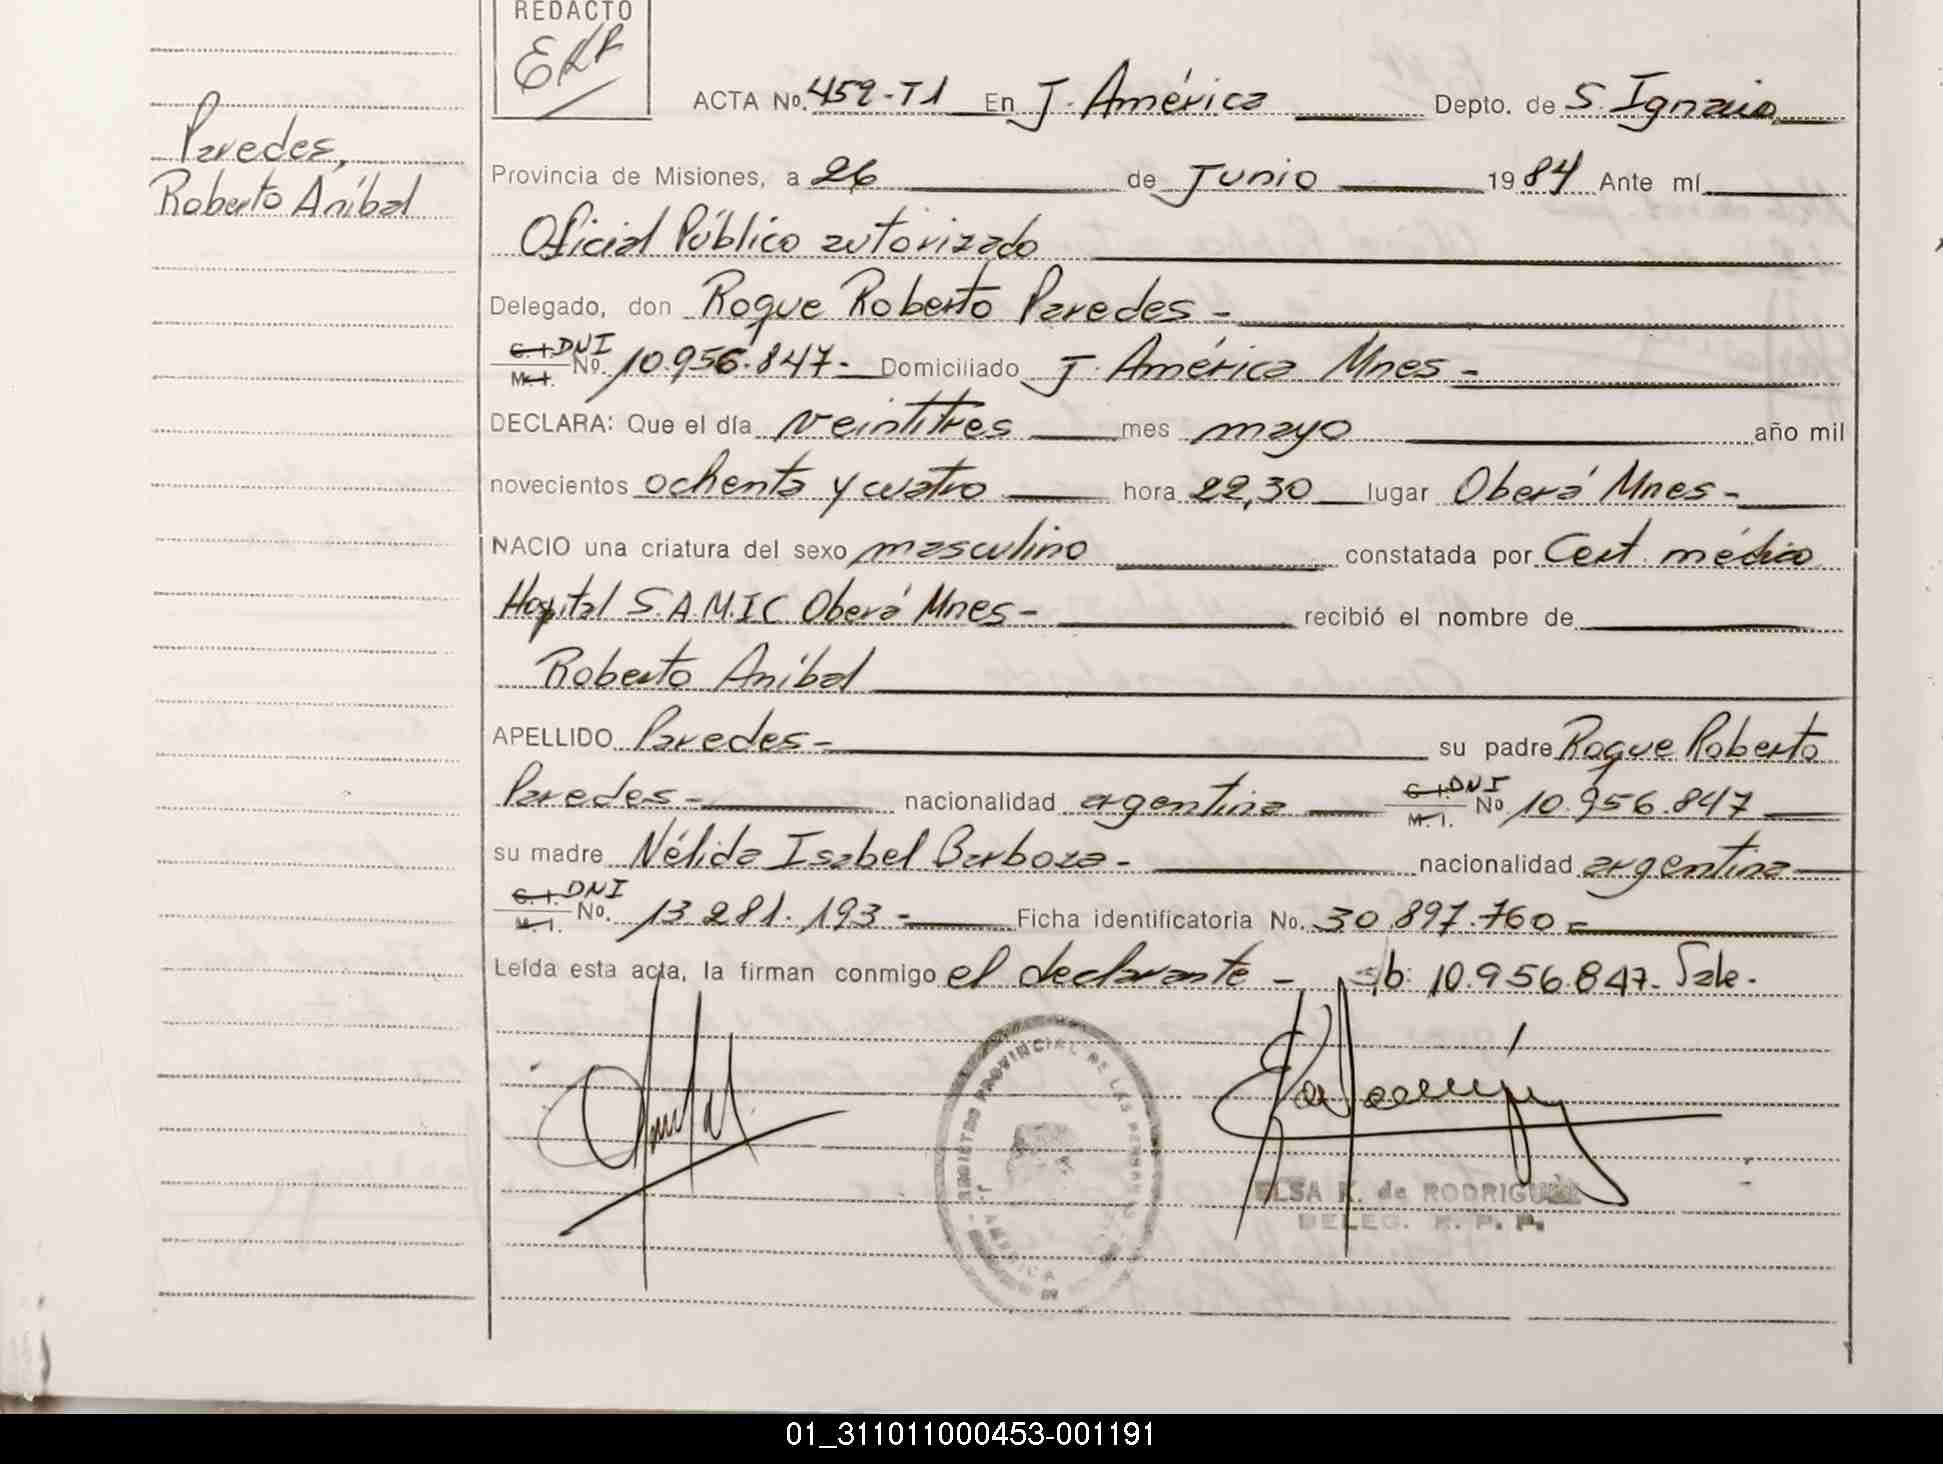 REDACTO
ERR
ACTA No. 459-T1 En J. América Depto. de S. Ignacio
Paredes,
Roberto Aníbal
Provincia de Misiones, a 26 de Junio 1984 Ante mí
Oficial Público autorizado
Delegado, don Roque Roberto Paredes -
C.I. DNI
M.I. No. 10.956.847- Domiciliado J. América Mnes -
DECLARA: Que el día veintitres mes mayo año mil
novecientos ochenta y cuatro hora 22,30 lugar Oberá Mnes -
NACIO una criatura del sexo masculino constatada por Cert. médico
Hospital S.A.M.I.C Oberá Mnes - recibió el nombre de
Roberto Aníbal
APELLIDO Paredes - su padre Roque Roberto
Paredes - nacionalidad argentina C.I. DNI M.I. No 10.956.847
su madre Nélida Isabel Barboza - nacionalidad argentina
C.I. DNI
M.I. No. 13.281.193 - Ficha identificatoria No. 30.897.760 -
Leída esta acta, la firman conmigo el declarante - s/b: 10.956.847- Vale.
REGISTRO PROVINCIAL DE LAS PERSONAS
J. AMERICA
ELSA R. de RODRIGUEZ
DELEG. R. P. P.
01_311011000453-001191